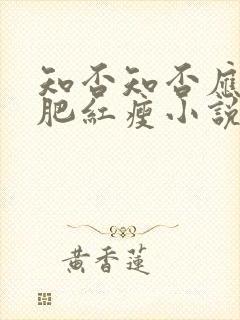 知否知否應
肥紅瘦小說
黃香蓮